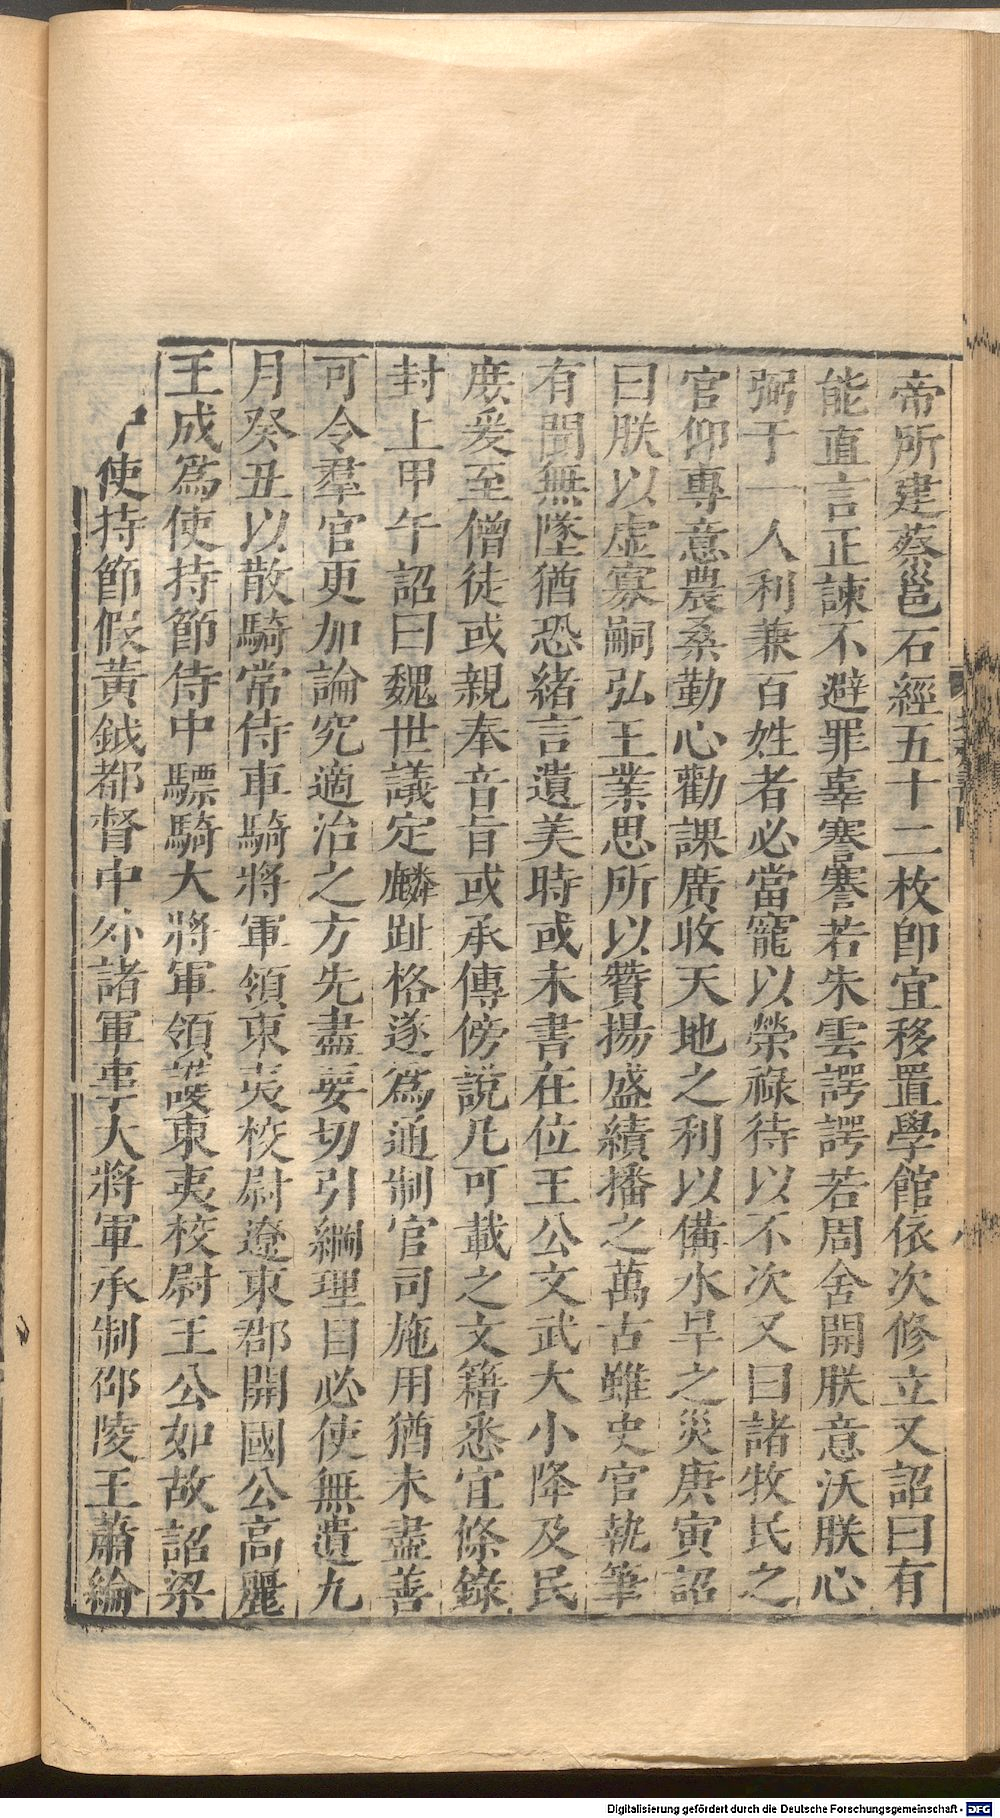 帝所建蔡邕石經五十二枚卽宜移置學館依次修立又詔曰有
能直言正諫不避罪辜謇謇若朱雲諤諤若周舍開朕意沃朕心
弼于一人利兼百姓者必當寵以榮祿待以不次又曰諸牧民之
官仰專意農桑勤心勸課廣收天地之利以備水旱之災庚寅詔
曰朕以虛寡嗣弘王業思所以贊揚盛績播之萬古雖史官執筆
有聞無墜猶恐緒言遺美時或未書在位王公文武大小降及民
庶爰至僧徒或親奉音旨或承傳傍說凡可載之文籍悉宜條錄
封上甲午詔曰魏世議定麟趾格遂爲通制官司施用猶未盡善
可令羣官更加論究適治之方先盡要切引綱理目必使無遺九
月癸丑以散騎常侍車騎將軍領東夷校尉遼東郡開國公高麗
王成爲使持節侍中驃騎大將軍領護東夷校尉王公如故詔梁
使持節假黃鉞都督中外諸軍事大將軍承制邵陵王蕭綸
Digitalisierung gefördert durch die Deutsche Forschungsgemeinschaft - DFG